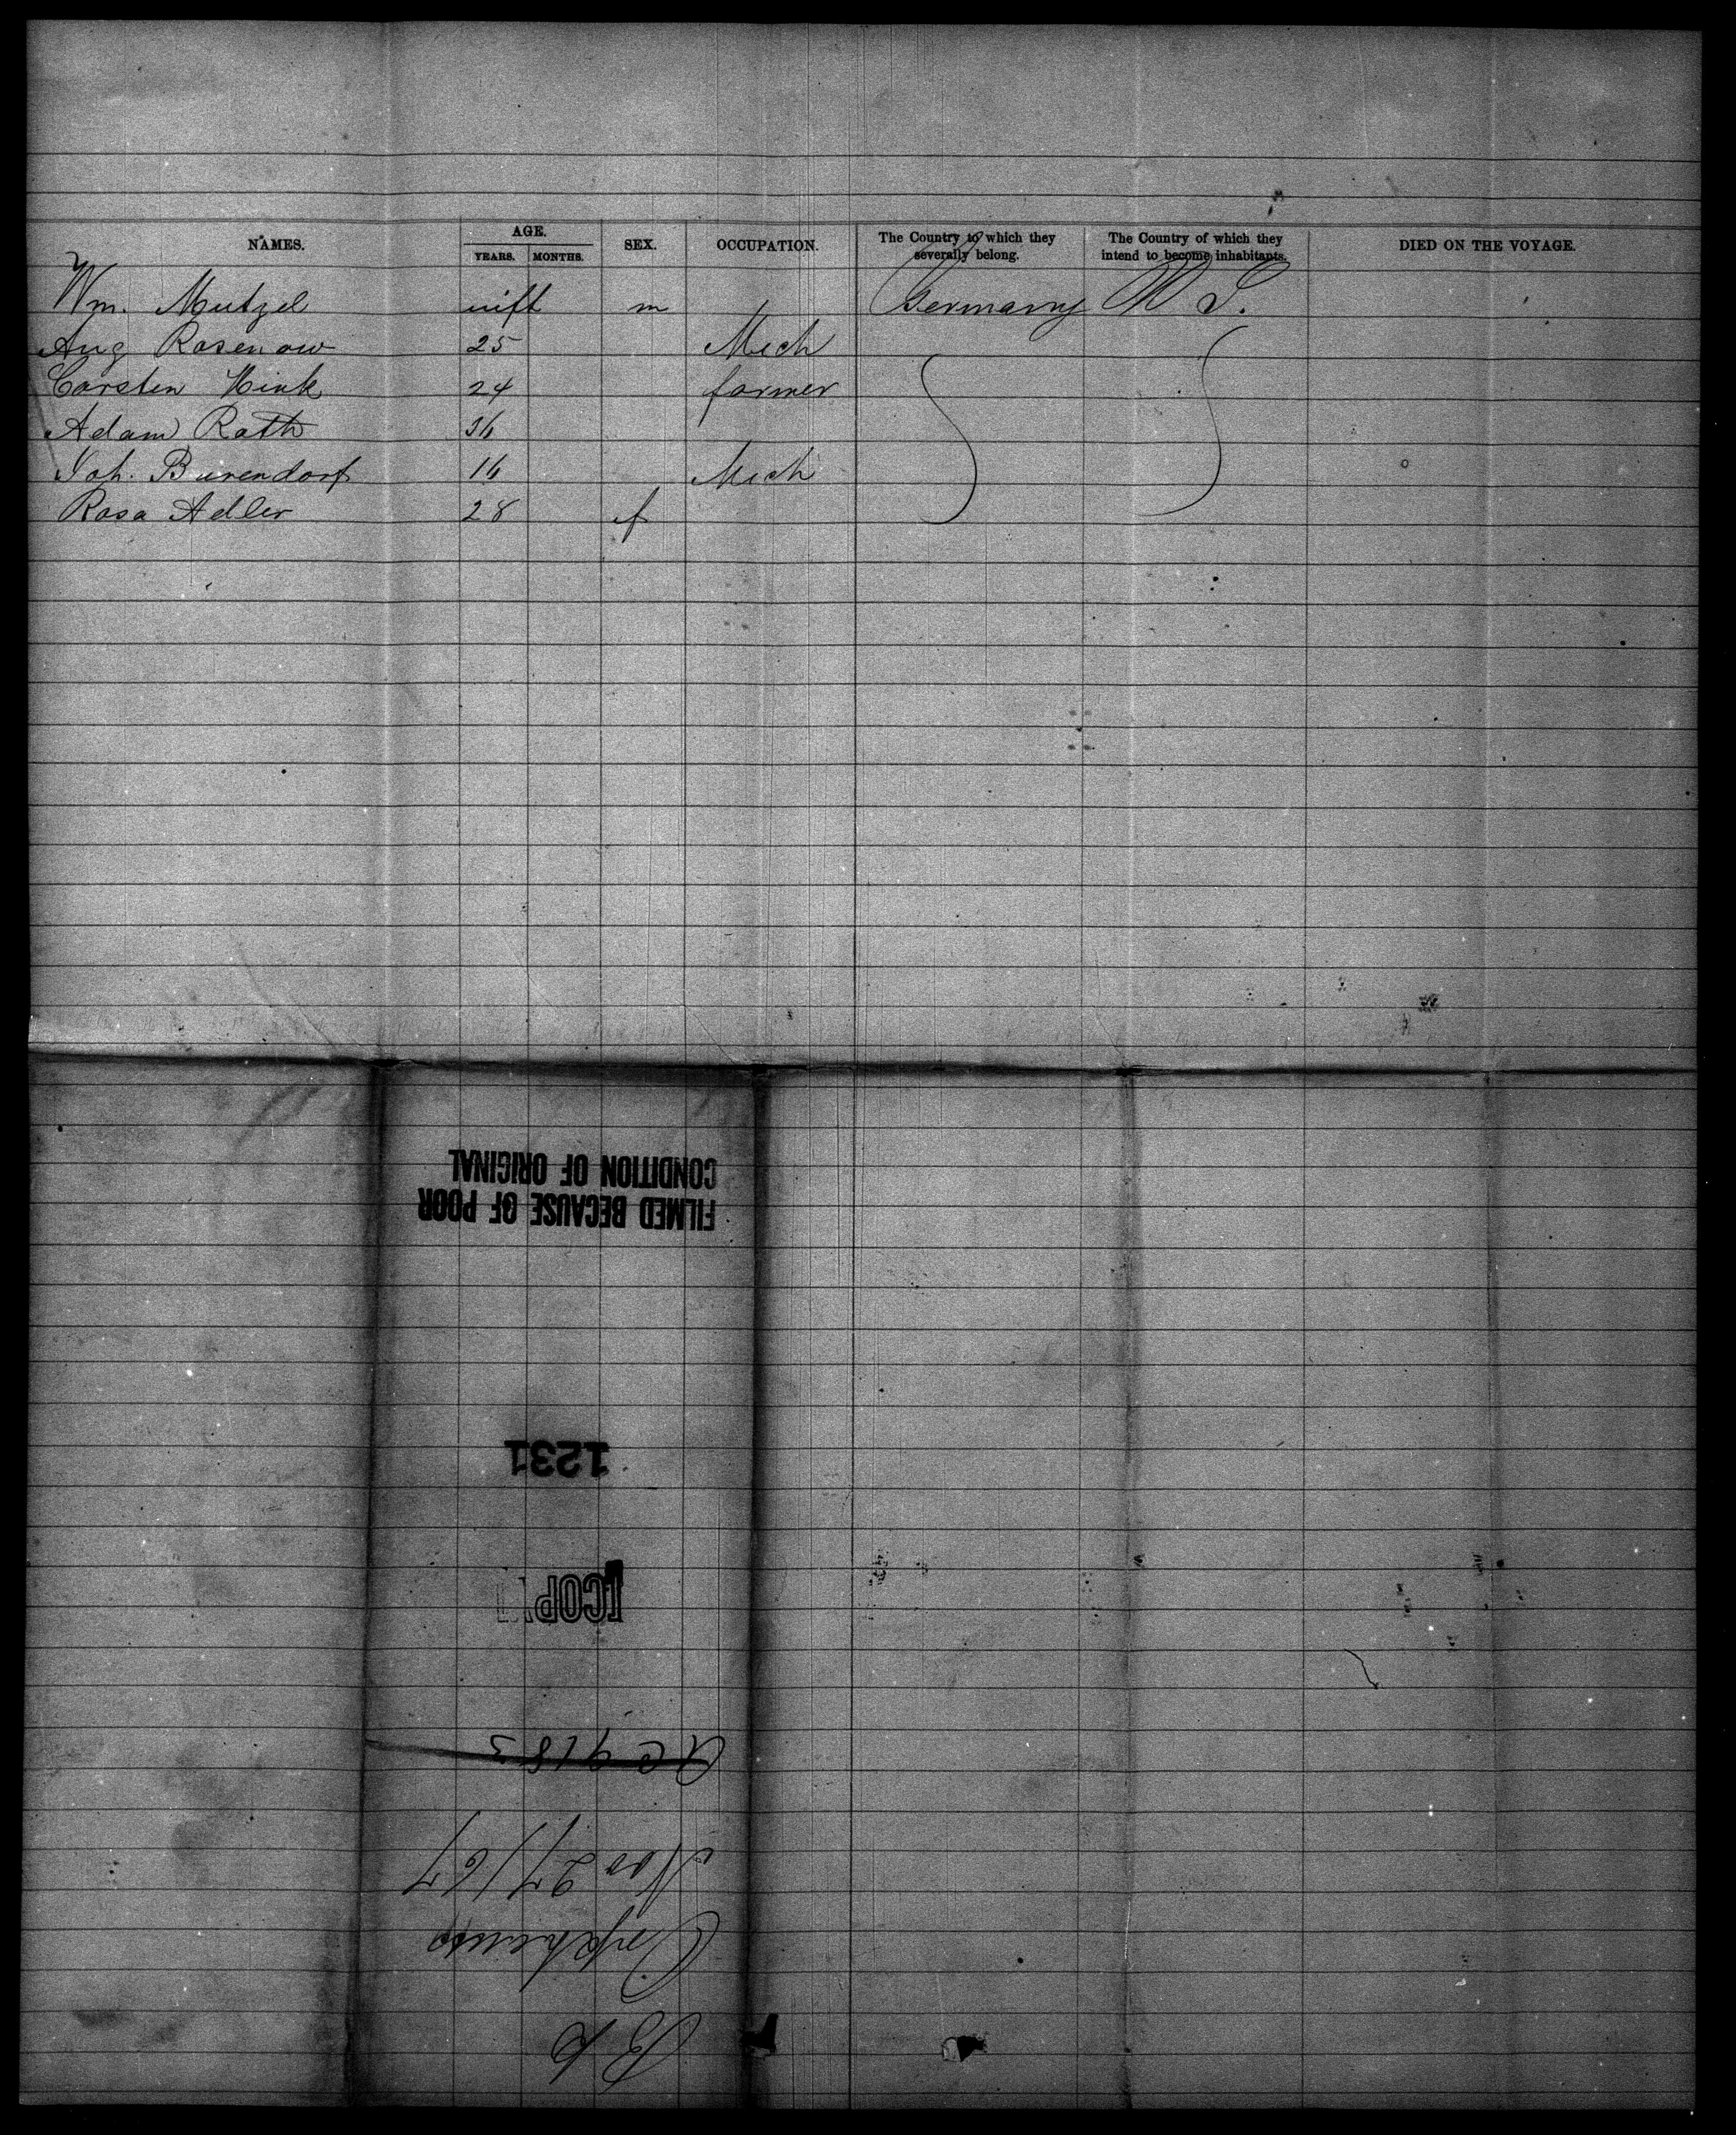 NAMES. AGE. SEX. OCCUPATION. The Country to which they severally belong. The Country of which they intend to become inhabitants. DIED ON THE VOYAGE.
YEARS. MONTHS.
Wm. Mutzel inft m Germany U S.
Aug Rosenow 25 Mech
Carsten Hink 24 farmer
Adam Rath 36
Joh. Burendorf 16 Mech
Rosa Adler 28 f
FILMED BECAUSE OF POOR
CONDITION OF ORIGINAL
1231
COPY
9183
Nov 27/67
Orpheus
Bk